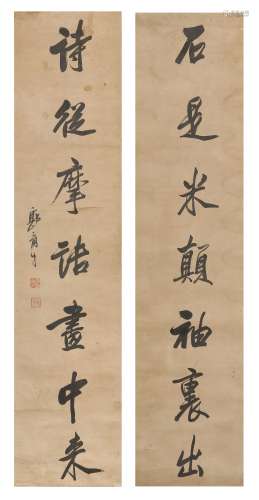 石是米顛袖裏出
詩從摩詰畫中来